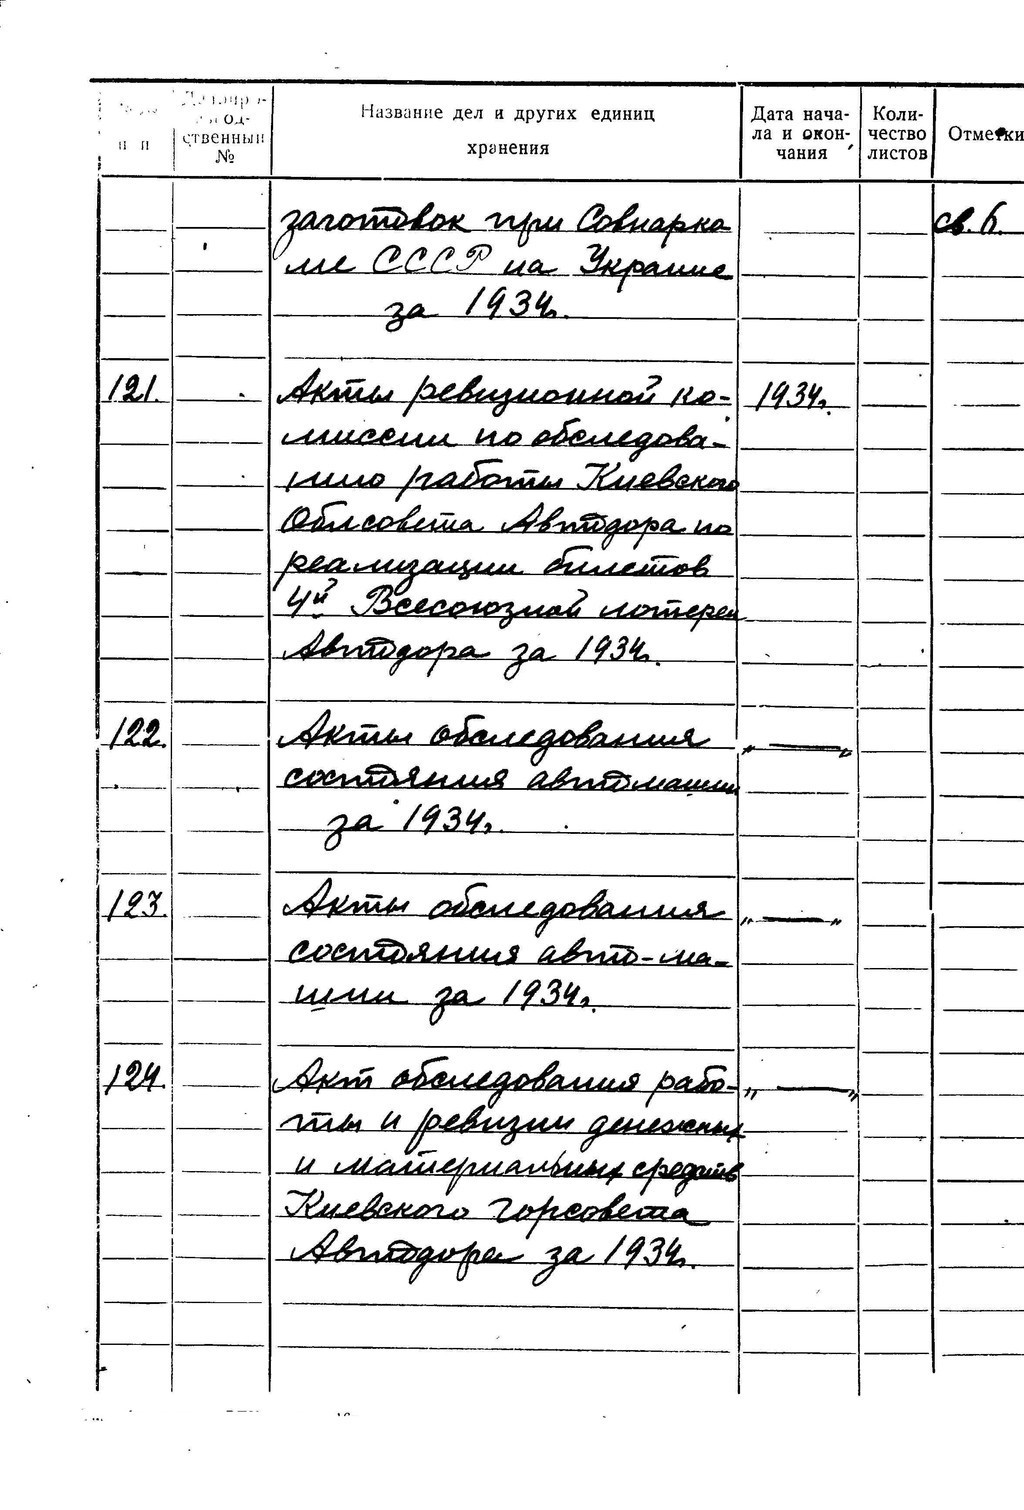 п п
ственный
№
Название дел и других единиц
хранения
Дата нача-
ла и окон-
чания
Коли-
чество
листов
Отметки
заготовок при Совнарко
ме СССР на Украине
за 1934г.
св. 6.
121.
Акты ревизионной ко-
миссии по обследова-
нию работы Киевского
Облсовета Автодора по
реализации билетов
4й Всесоюзной лотереи
Автодора за 1934г.
1934г.
122.
Акты обследования
состояния автомашин
за 1934г.
„ — „
123.
Акты обследования
состояния авто-ма-
шин за 1934г.
„ — "
124.
Акт обследования рабо-
ты и ревизии денежных
и материальных средств
Киевского горсовета
Автодора за 1934г.
„ — "